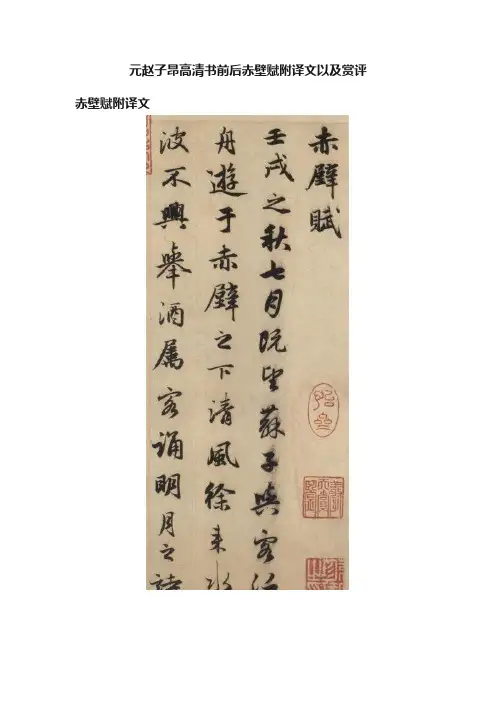 元赵子昂高清书前后赤壁赋附译文以及赏评
赤壁赋附译文
赤壁賦
壬戌之秋七月既望蘇子與客泛
舟遊于赤壁之下清風徐来水
波不興舉酒属客誦明月之詩